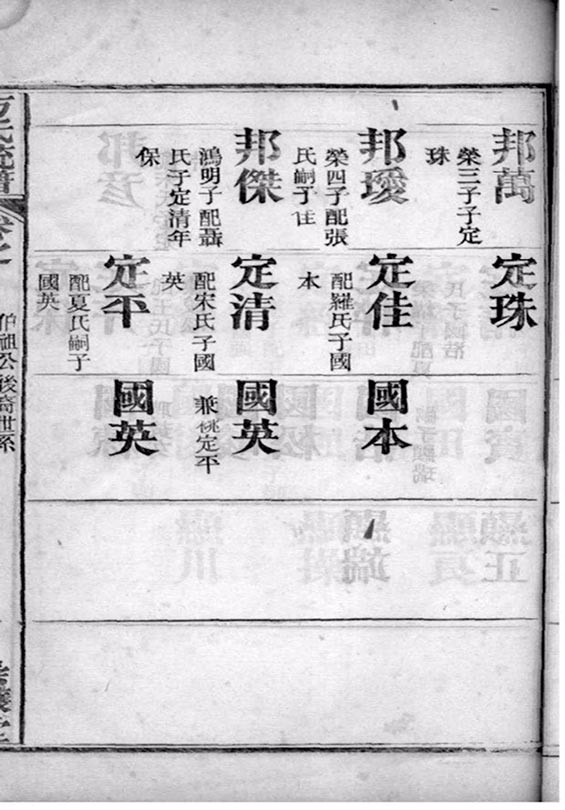 邦萬
榮三子子定
珠
邦璦
榮四子配張
氏嗣子住
邦傑
鴻明子配聶
氏子定清年
保
定珠
定佳
配羅氏子國
本
定清
配宋氏子國
英
定平
配夏氏嗣子
國英
國本
國英
兼祧定平
國英
伯祖公後裔世系